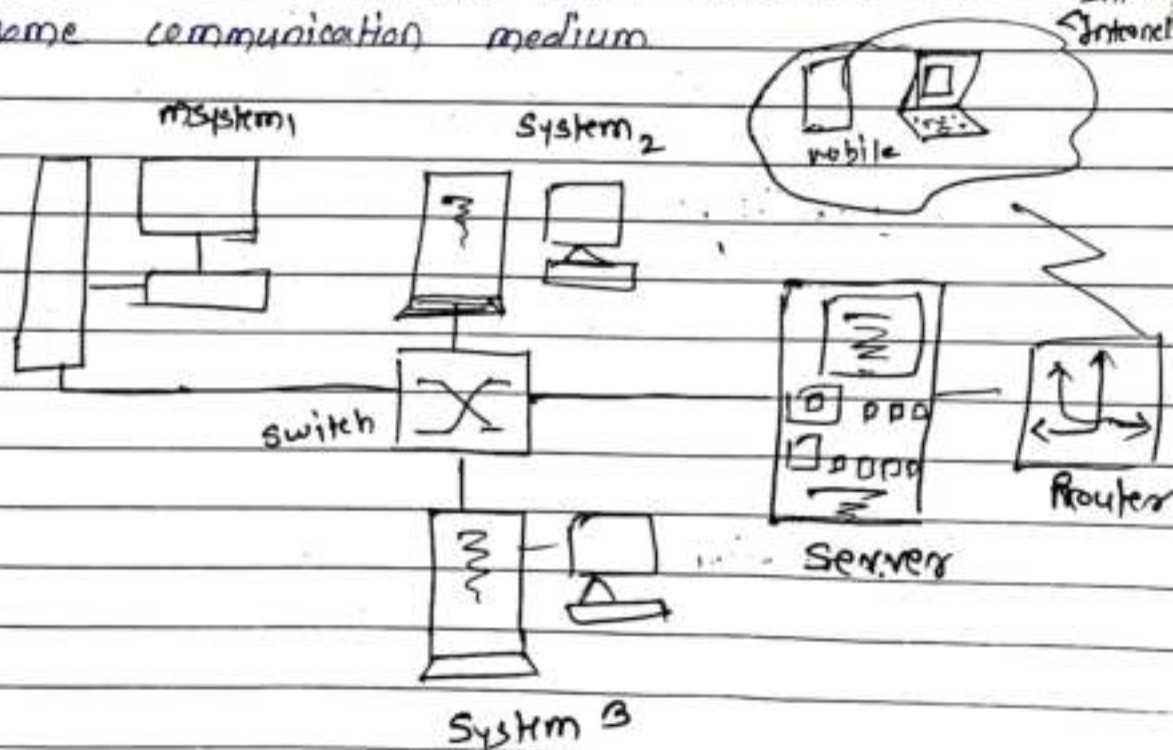 ome communication medium
Intranet
System1
System2
mobile
switch
Router
Server
System 3